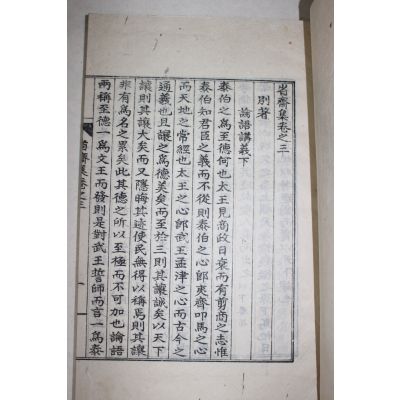 齋集卷之三
別著
論語講義下
泰伯之爲至德何也太王見商政日衰而有剪商之志惟
泰伯知君臣之義而不從則泰伯之心卽夷齊叩馬之心
而天地之常經也太王之心卽武王孟津之心而古今之
通義也且讓之爲德美矣而至於三則其讓誠矣以天下
讓則其讓大矣而又隱晦其迹使民無得以稱焉則其讓
非有爲名之累矣此其德之所以至極而不可加也論語
兩稱至德一爲文王而發則是對武王誓師而言一爲泰
齋集卷之三